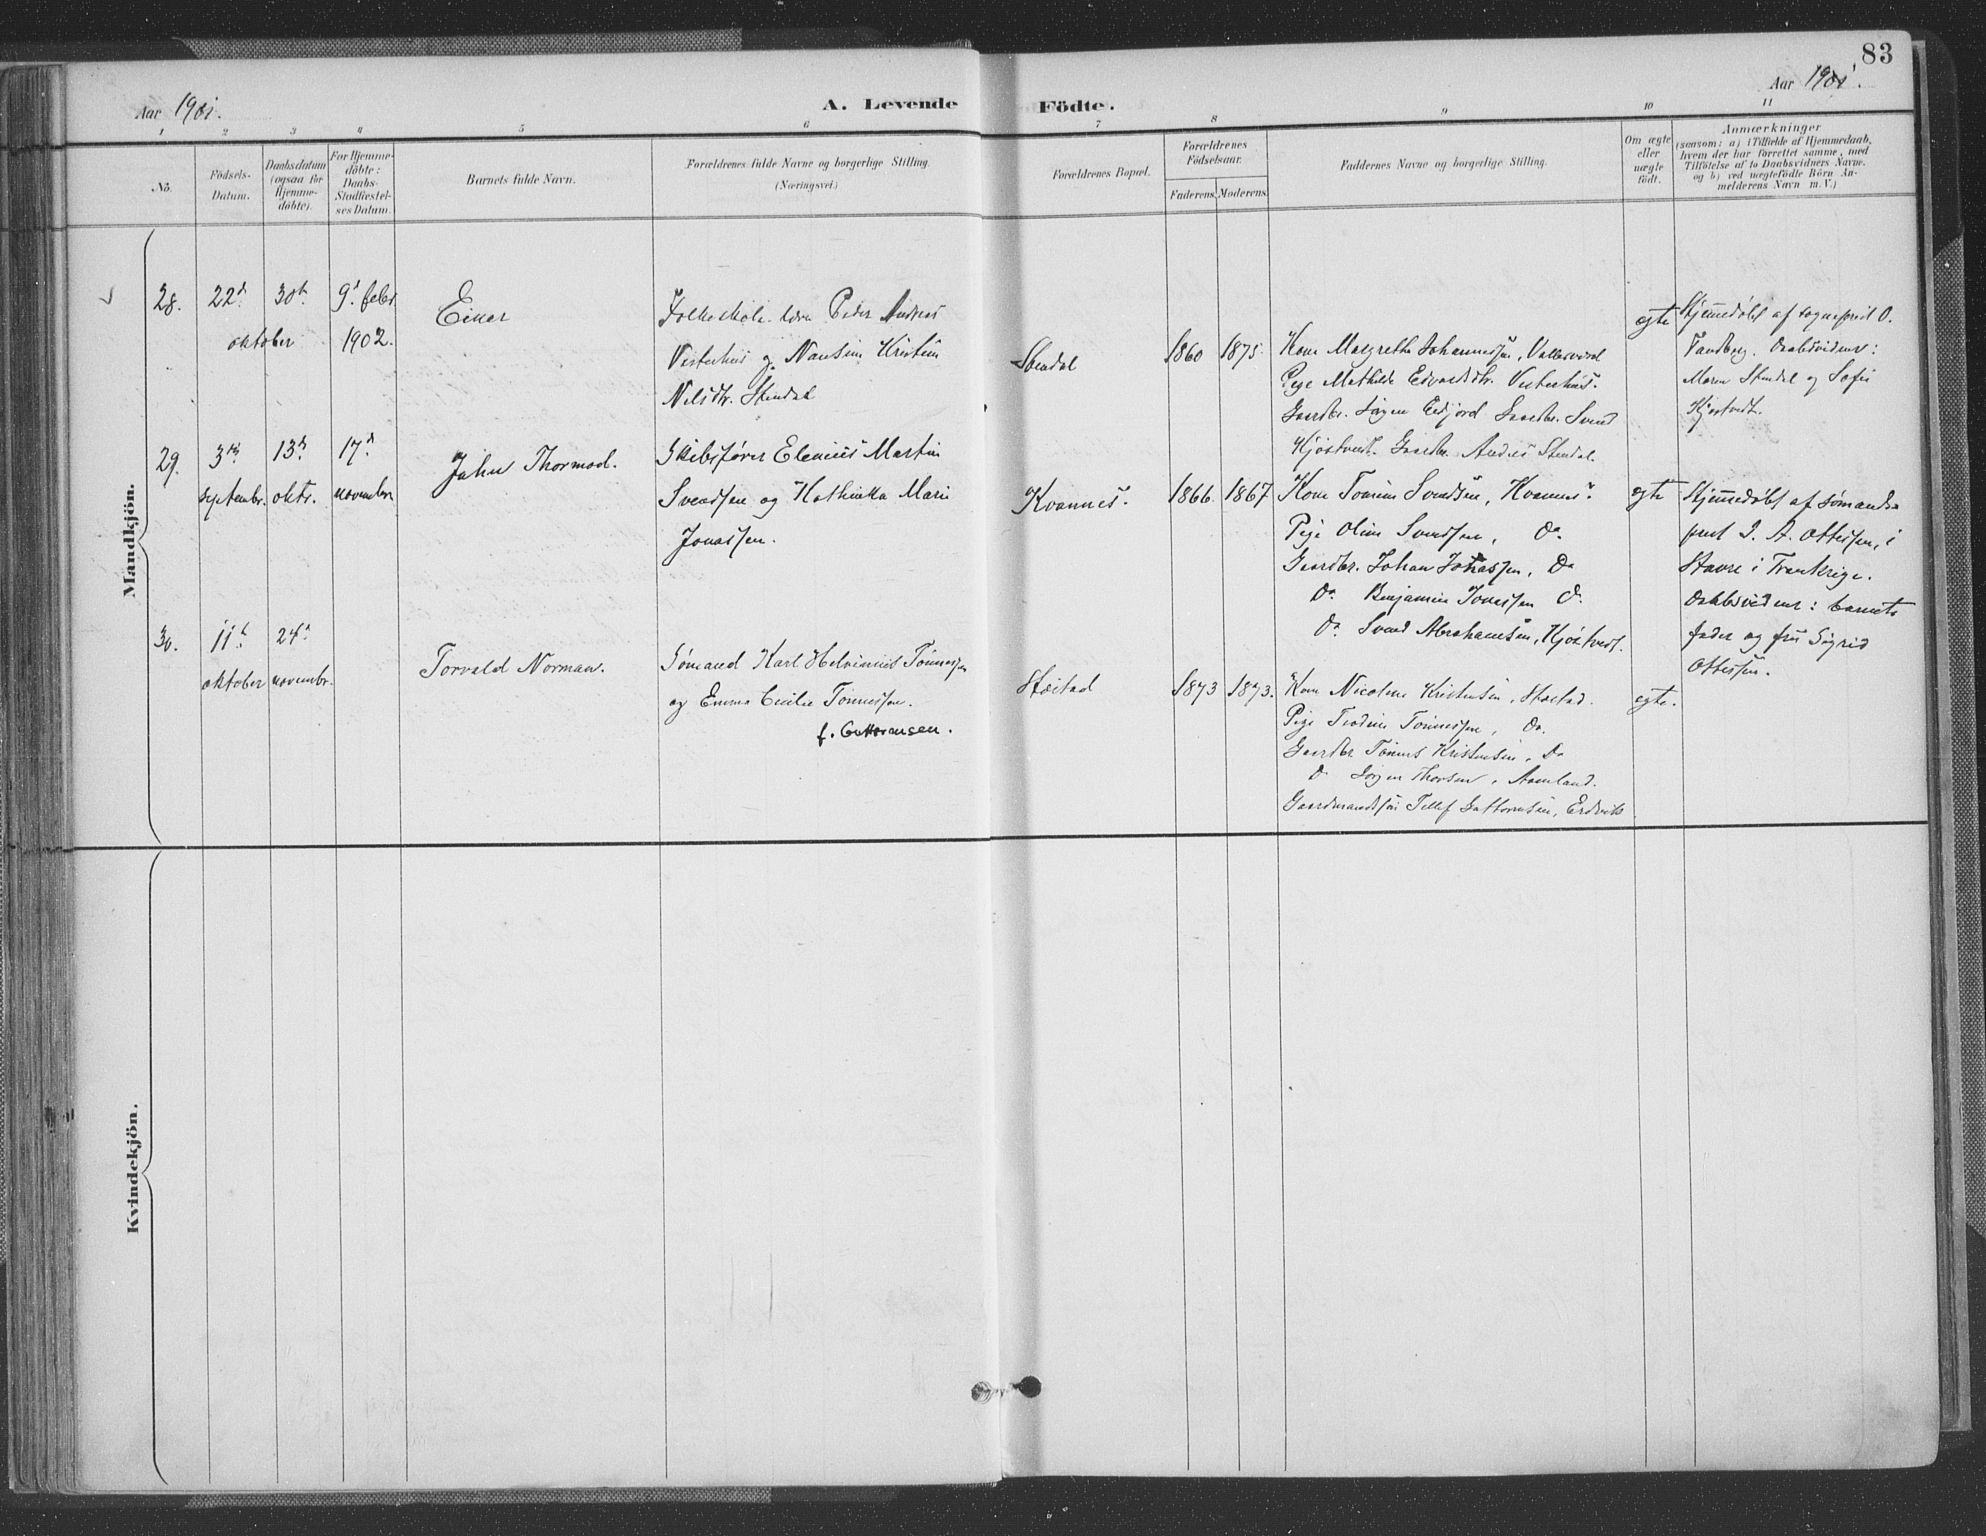 83
Aar 1901.
A. Levende Födte.
Aar 1901.
1 2 3 4 5 6 7 8 9 10 11
No.
Födsels-
Datum.
Daabsdatum
(ogsaa for
Hjemme-
döbte).
For Hjemme-
döbte:
Daabs-
Stadfæstel-
ses Datum.
Barnets fulde Navn.
Forældrenes fulde Navne og borgerlige Stilling.
(Næringsvei)
Forældrenes Bopæl.
Forældrenes
Födselsaar.
Faderens. Moderens.
Faddernes Navne og borgerlige Stilling.
Om ægte
eller
uægte
født.
Anmærkninger
(saasom: a) i Tilfælde af Hjemmedaab,
hvem der har forrettet samme, med
Tilföielse af to Daabsvidners Navne.
og b) ved uægtefödte Börn An-
melderens Navn m. V.)
Mandkjön.
28. 22d oktober
30t
9d febr. 1902.
Einar
Folkeskolelærer Peder Andreas
Vesterhus og Nansine Kristine
Nilsdtr. Stendal
Stendal
1860 1875.
Kone Margrethe Johannessen, Vallesverd
Pige Mathilde Edvardsdtr. Vesterhus.
Gaardbr. Jörgen Eidjord Gaardbr. Svend
Kjöstvedt. Gaardbr. Andreas Stendal.
egte
Hjemmedøbt af sogneprest O.
Tandberg. Daabsvidner:
Maren Stendal og Sofie
Kjöstvedt.
29. 3die septembr.
13d oktr.
17d novembr.
John Thormod.
Skibsfører Elenius Martin
Svendsen og Kathinka Marie
Jonassen.
Kvannes.
1866. 1867
Kone Tomine Svendsen, Kvannes.
Pige Oline Svendsen, Do
Gaardbr. Johan Jonassen, Do
Do Benjamin Jonassen Do.
Do Svend Abrahamsen, Kjöstvedt.
egte
Hjemmedøbt af sømands-
prest J. A. Ottesen, i
Havre i Frankrige.
Daabsvidner: barnets
fader og fru Sigrid
Ottesen.
30. 11t oktober
24d novembr.
Torvald Norman.
Sömand Karl Helvinius Tönnessen
og Emma Cecilie Tönnessen.
f. Guttormsen.
Støstad
1873 1873.
Kone Nicoline Kristensen, Støstad.
Pige Teodine Tönnessen, Do.
Gaardbr Tönnes Kristensen, Do
Do Jörgen Thorsen, Aamland.
Gaardmandssön Tellef Guttormsen, Erdvik
egte.
Kvindekjön.